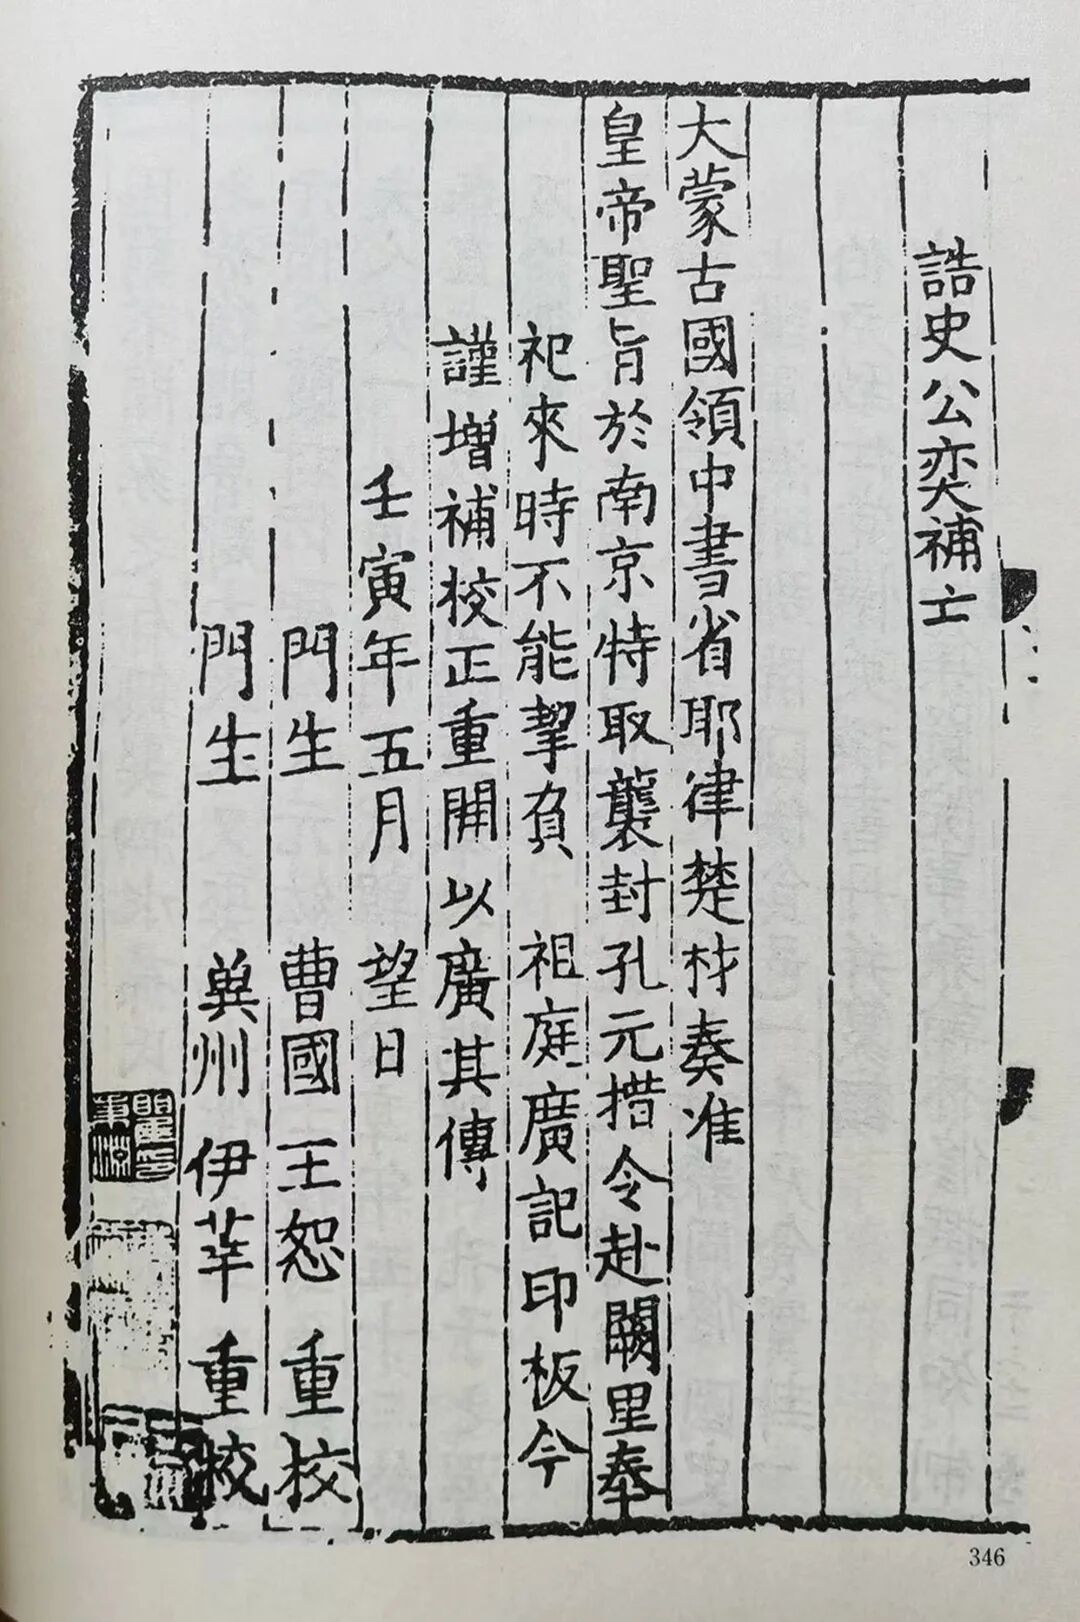 誥史公奕補士
大蒙古國領中書省耶律楚材奏准
皇帝聖旨於南京特取襲封孔元措令赴闕里奉
祀來時不能挈負 祖庭廣記印板今
謹增補校正重開以廣其傳
壬寅年五月 望日
門生 曹國王恕 重校
門生 冀州伊莘 重校
346